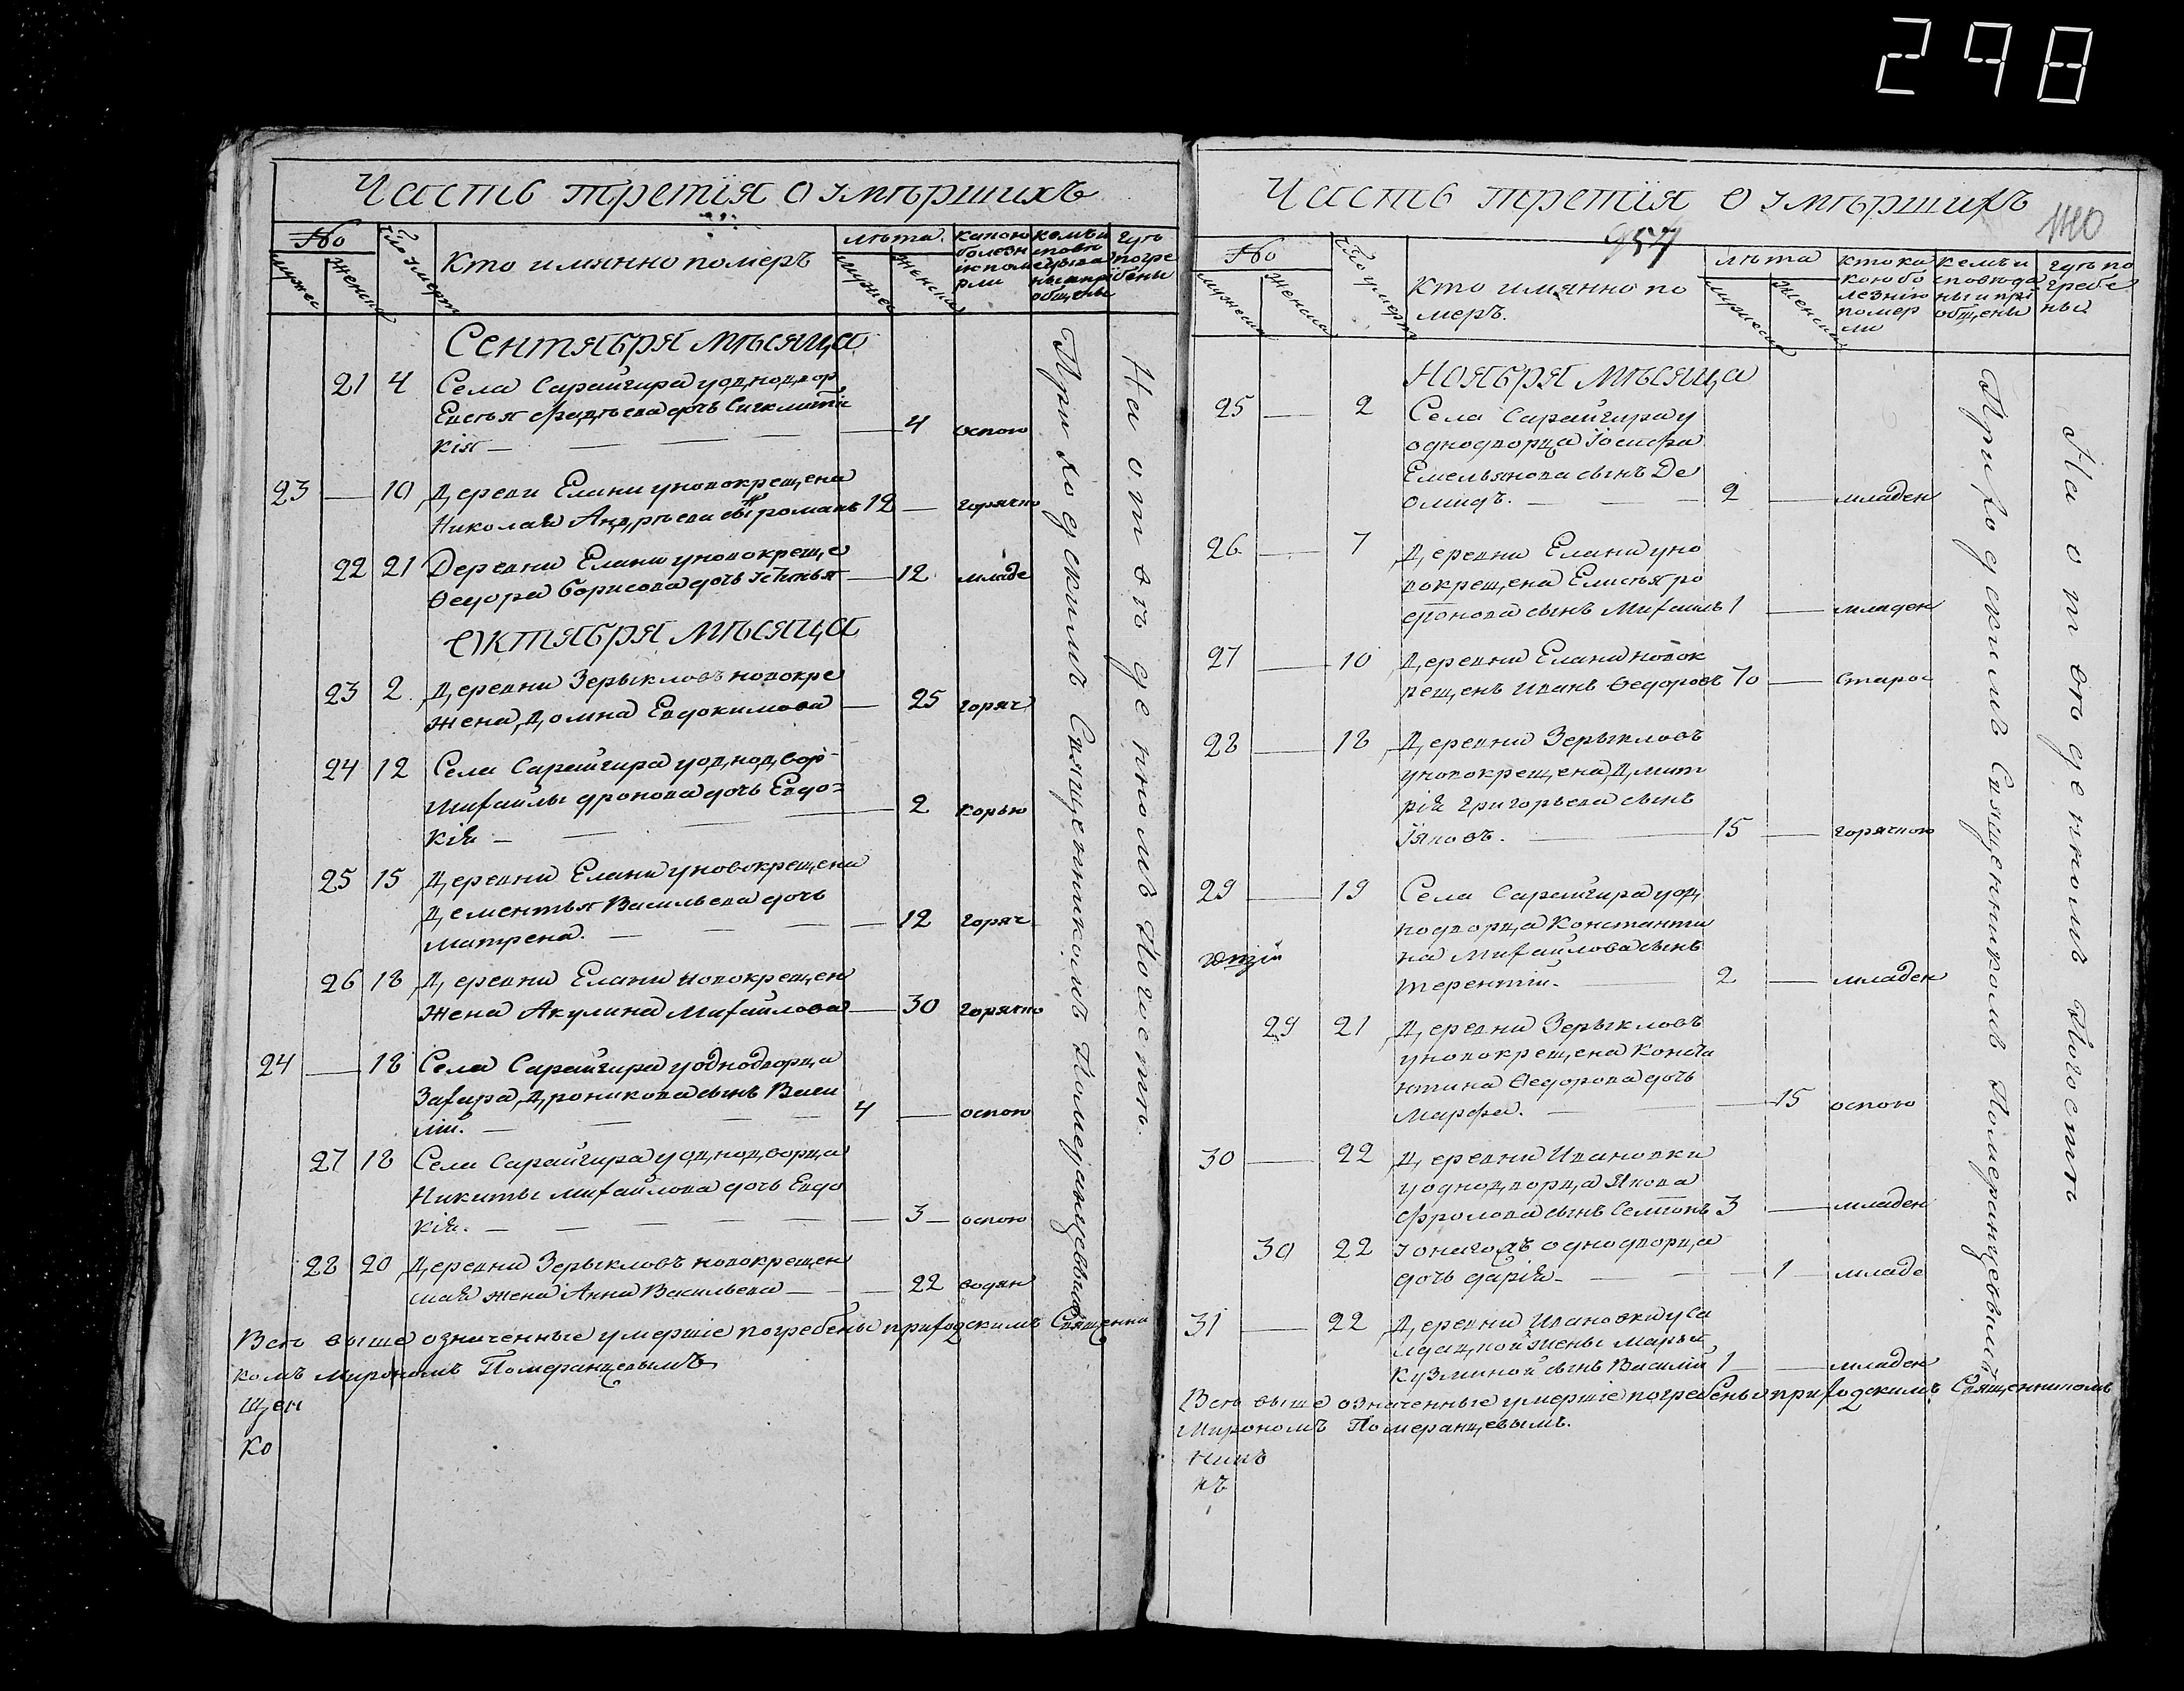 298
Часть третія о умѣршихъ
№
мужес
женска
Число умерт
Кто имянно померъ
лѣта
мужес
женска
какою болезн
іюпоме
рли
кемъи
спове
общены
Гдѣ
погре
бены
Сентября мѣсяца
21 4 Села Сарайгира у однодвор
Евстья Фадѣева дочь Сиклити
кія — — 4 оспою
23 — 10 Деревни Елани уновокрещена
Николая Андрѣева сынъ романъ 12 — горячк
22 21 Деревни Елани уновокреще
Ѳедора Борисова дочь Устинья — 12 младе
Октября мѣсяца
23 2 Деревни Зерыкловъ новокре
жена Домна Евдокимова — 25 горяч
24 12 Села Сарайгира у однодвор
Михайлы дронова дочь Евдо
кія — — 2 корью
25 15 Деревни Елани уновокрещена
Дементья Васильева дочь
Матрена. — — 12 горяч
26 18 Деревни Елани новокрещен
жена Акулина Михайлова — 30 горячко
24 — 18 Села Сарайгира у однодворца
Захара Дроникова сынъ Васи
лій. — 4 — оспою
27 18 Села Сарайгира у однодворца
Никиты Михайлова дочь Евдо
кія. — — 3 — оспою
28 20 Деревни Зерыкловъ новокрещен
ная жена Анна Васильева — — 22 водян
Приходскимъ Священникомъ Померанцевымъ
На отведенномъ Погостѣ.
Всѣ выше означенные умершіе погребены приходскимъ Священни
комъ Мирономъ Померанцевымъ
Щен
ко
Часть третія о умѣршихъ
957
1140
№
мужеска
женска
Число умерт
Кто имянно по
меръ.
лѣта
мужеска
женска
кто ка
кою бо
лезнію
померли
кемъ и
споведа
ны и прі
общены
гдѣ по
гребе
ны
Ноября мѣсяца
25 — 2 Села Сарайгира у
однодворца Іосифа
Емельянова сынъ Де
омидъ. — 2 — младен
26 — 7 Деревни Елани уно
вокрещена Елисѣя ро
ерѳонова сынъ Михаилъ 1 — младен
27 — 10 Деревни Елани новок
рещенъ Иванъ Ѳедоровъ 70 — старос
28 — 18 Деревни Зерыкловъ
уновокрещена Дмит
рія Григорьева сынъ
Іяковъ. — 15 — горячкою
29 — 19 Села Сарайгира у од
нодворца Константи
на Михайлова сынъ
терентій. — 2 — младен
29 21 Деревни Зерыкловъ
уновокрещена Конста
нтина Ѳедорова дочь
Марфа. — — 15 оспою
30 — 22 Деревни Ивановки
у однодворца Якова
Фролова сынъ Семіонъ 3 — младен
30 22 Уоногожъ однодворца
дочь дарія — — 1 — младе
31 — 22 Деревни Ивановки у са
лдацкой жены Марьи
Кузминой сынъ Василій 1 — младен
Приходскимъ Священникомъ Померанцевымъ
На отведенномъ Погостѣ
Всѣ выше означенные умершіе погребены приходскимъ Священникомъ
Мирономъ Померанцевымъ.
никъ
къ